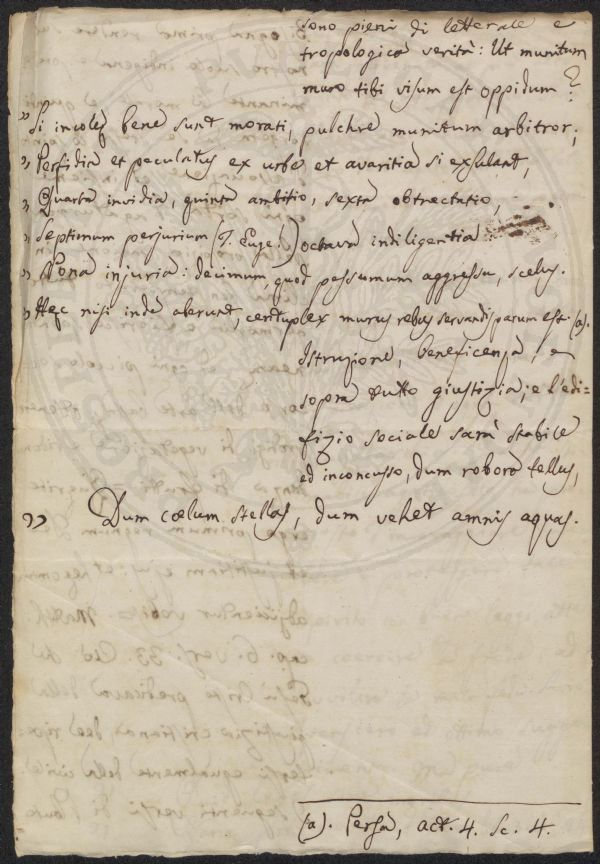 sono pieni di letterale e
tropologica verità: Ut munitum
muro tibi visum est oppidum?
" Si incolę bene sunt morati, pulchre munitum arbitror;
" Perfidia et peculatus ex urbe et avaritia si exsulant,
" Quarta invidia, quinta ambitio, sexta obtrectatio,
" Septimum perjurium (T. Euge!) octava indiligentia
" Nona injuria: decimum, quod pessumum aggressu, scelus.
" Hęc nisi inde aberunt, centuplex murus rebus servandis parum est. (a).
Istruzione, beneficenza, e
sopra tutto giustizia; e l'edi=
fizio sociale sarà stabile
ed inconcusso, dum robora tellus,
" Dum cœlum stellas, dum vehet amnis aquas.
(a). Persa, act. 4. Sc. 4.